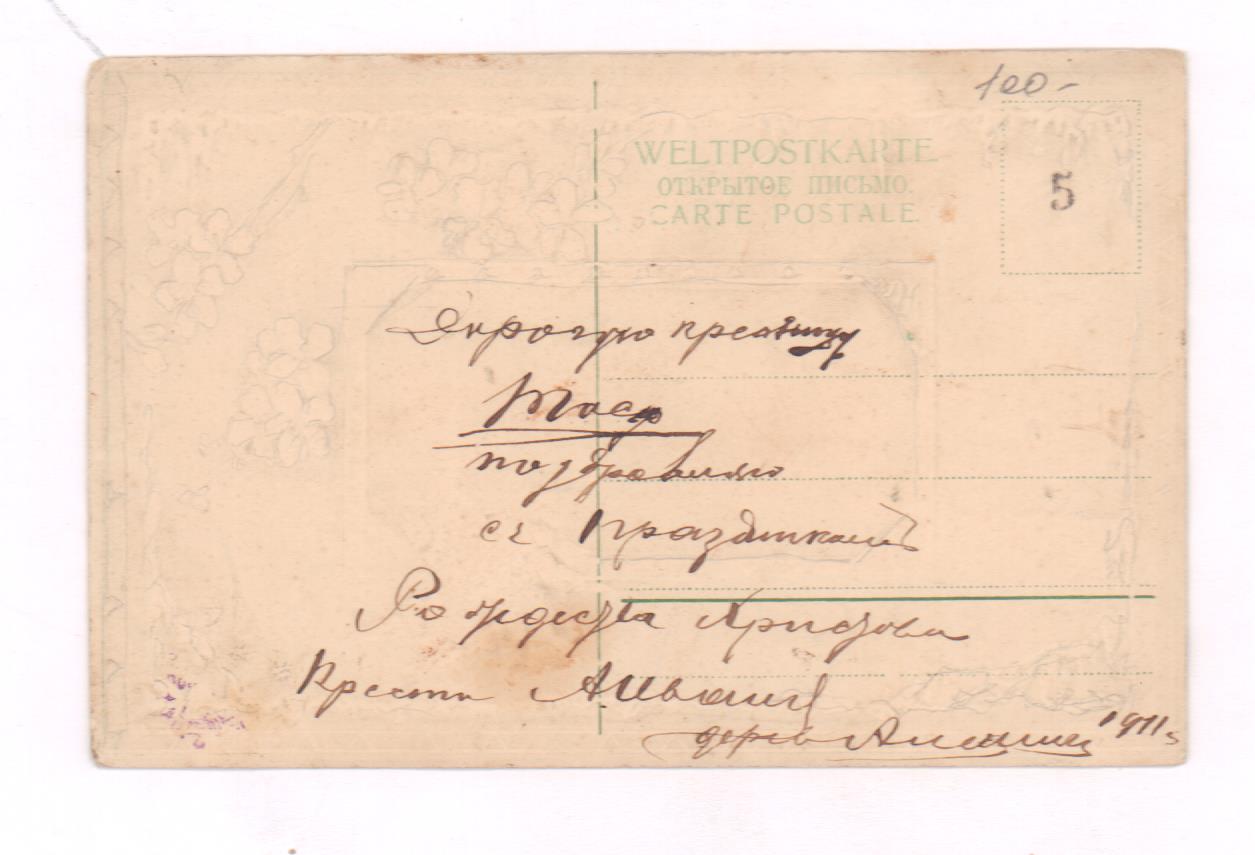 100-
WELTPOSTKARTE.
ОТКРЫТОЕ ПИСЬМО.
CARTE POSTALE.
5
Дорогую крестницу
Тосю
поздравляю
съ Праздникомъ
Рождества Христова
Крестн
1911